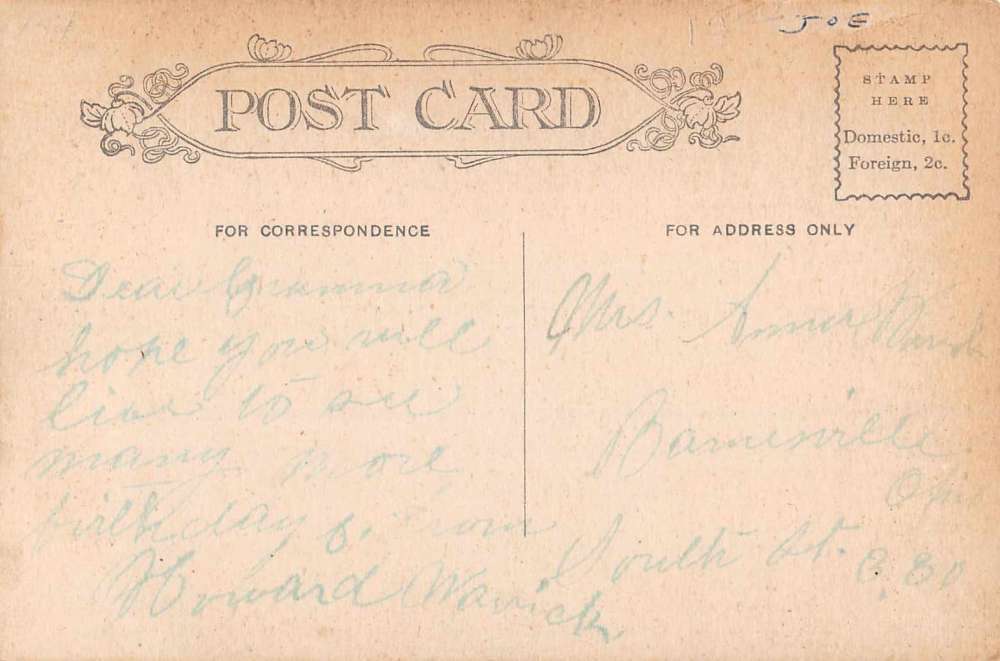 JOE
POST CARD
STAMP
HERE
Domestic, 1c.
Foreign, 2c.
FOR CORRESPONDENCE
Dear Gramma
hope you will
live to see
many more
birthdays. From
Howard Warick
FOR ADDRESS ONLY
Mrs.
Barnesville
Ohio
South St. 330